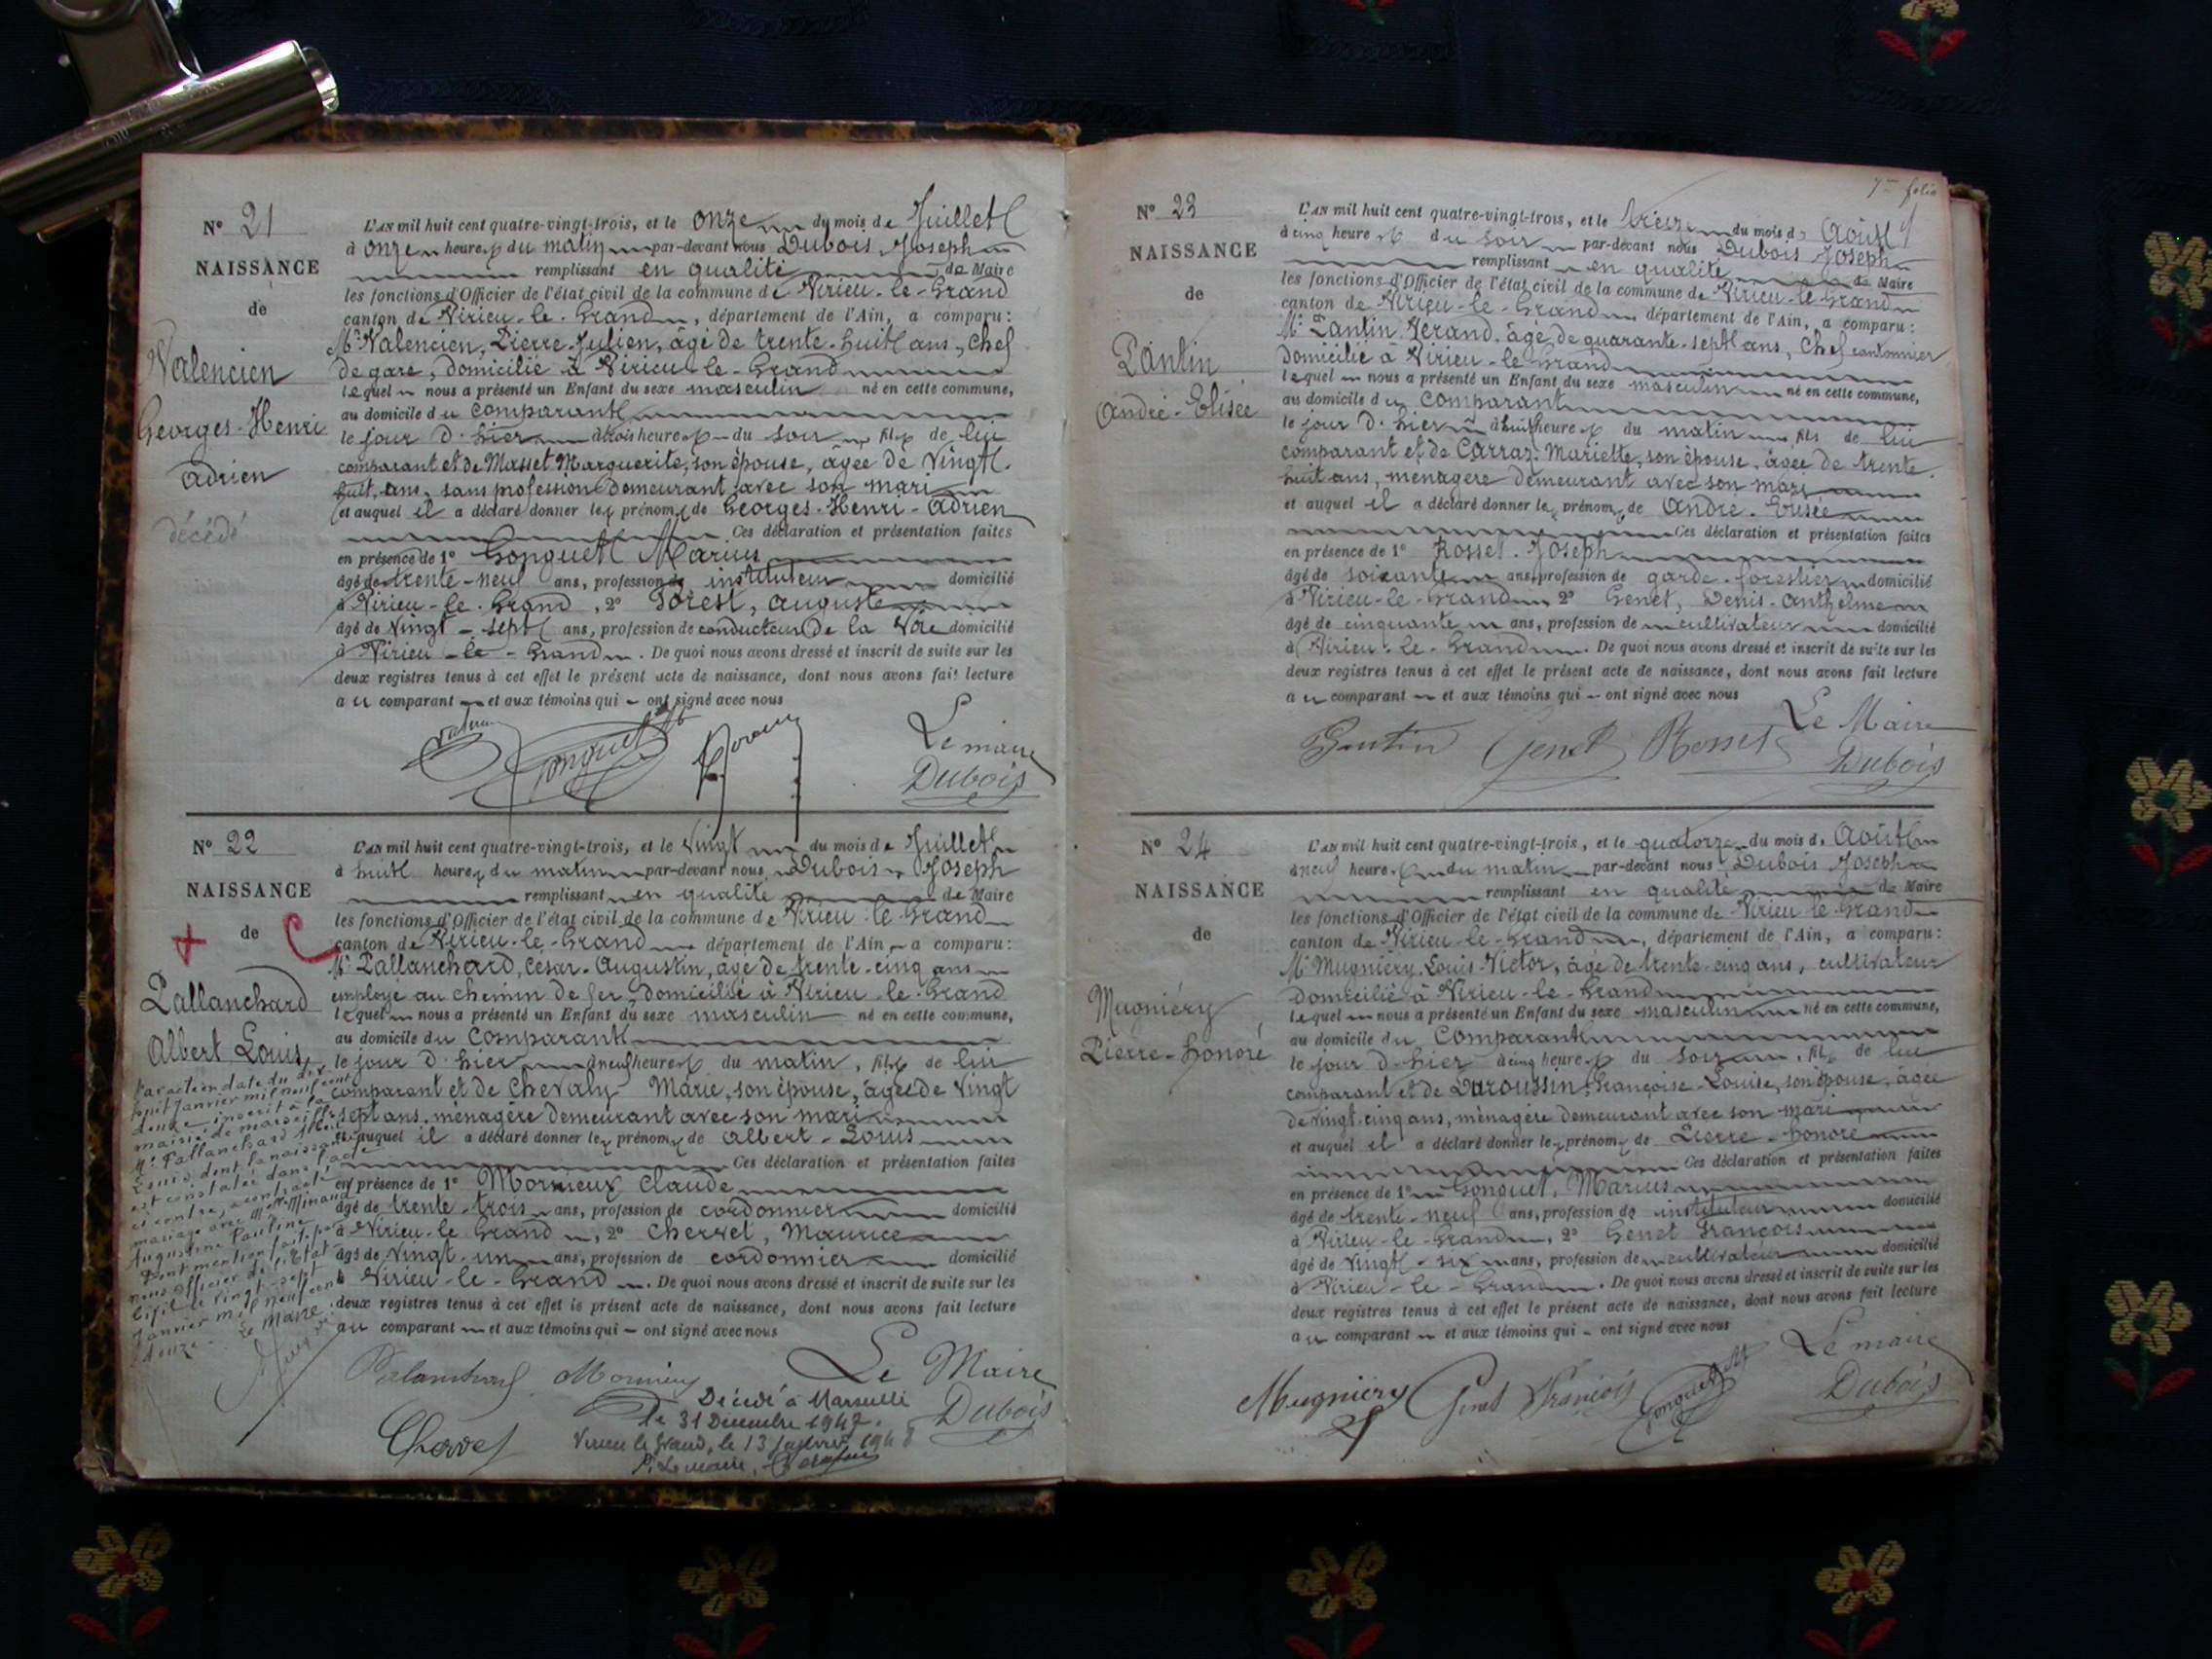 N° 21
NAISSANCE
de
Valencien
Georges-Henri
Adrien
décédé
L'AN mil huit cent quatre-vingt-trois, et le onze du mois de Juillet
à onze heures du matin par-devant nous Dubois, Joseph
remplissant en qualité de Maire
les fonctions d'Officier de l'état civil de la commune de Virieu-le-Grand
canton de Virieu-le-Grand, département de l'Ain, a comparu:
Mr Valencien, Pierre-Julien, âgé de trente-huit ans, chef
de gare, domicilié à Virieu-le-Grand
lequel nous a présenté un Enfant du sexe masculin né en cette commune,
au domicile du comparant
le jour d'hier à trois heures du soir fils de lui
comparant et de Masset Marguerite, son épouse, âgée de vingt-
huit ans, sans profession demeurant avec son mari
et auquel il a déclaré donner les prénoms de Georges-Henri-Adrien
Ces déclaration et présentation faites
en présence de 1° Gonguet Marius
âgé de trente-neuf ans, profession de instituteur domicilié
à Virieu-le-Grand, 2° Forest, Auguste
âgé de vingt-sept ans, profession de conducteur de la Voie domicilié
à Virieu-le-Grand. De quoi nous avons dressé et inscrit de suite sur les
deux registres tenus à cet effet le présent acte de naissance, dont nous avons fait lecture
au comparant et aux témoins qui ont signé avec nous
Gonguet
Le maire
Dubois
N° 22
NAISSANCE
de
Pallanchard
Albert Louis
Par acte en date du dix
huit Janvier mil neuf cent
douze inscrit à la
mairie de marseille
Mr Pallanchard Albert
Louis dont la naissance
est constatée dans l'acte
ci contre, a contracté
mariage avec
Augustine Pauline
Dont mention faite par
nous Officier de l'Etat
Civil le vingt-sept
Janvier mil neuf cent
douze. Le Maire
L'AN mil huit cent quatre-vingt-trois, et le vingt du mois de Juillet
à huit heures du matin par-devant nous Dubois Joseph
remplissant en qualité de Maire
les fonctions d'Officier de l'état civil de la commune de Virieu-le-Grand
canton de Virieu-le-Grand département de l'Ain, a comparu:
Mr Pallanchard, César-Augustin, âgé de trente-cinq ans
employé au chemin de fer, domicilié à Virieu-le-Grand
lequel nous a présenté un Enfant du sexe masculin né en cette commune,
au domicile du comparant
le jour d'hier à neuf heures du matin, fils de lui
comparant et de Chevaly Marie, son épouse, âgée de vingt
sept ans, ménagère demeurant avec son mari
et auquel il a déclaré donner les prénoms de Albert-Louis
Ces déclaration et présentation faites
en présence de 1° Monnieux Claude
âgé de trente-trois ans, profession de cordonnier domicilié
à Virieu-le-Grand, 2° Chervet, Maurice
âgé de vingt-un ans, profession de cordonnier domicilié
à Virieu-le-Grand. De quoi nous avons dressé et inscrit de suite sur les
deux registres tenus à cet effet le présent acte de naissance, dont nous avons fait lecture
au comparant et aux témoins qui ont signé avec nous
Le Maire
Dubois
Décédé à Marseille
le 31 Décembre 1947.
Virieu le Grand, le 13 Janvier 1948
P. Le maire,
7me folio
N° 23
NAISSANCE
de
Pantin
André-Elisée
L'AN mil huit cent quatre-vingt-trois, et le treize du mois d'Août
à cinq heures du soir par-devant nous Dubois Joseph
remplissant en qualité de Maire
les fonctions d'Officier de l'état civil de la commune de Virieu-le-Grand
canton de Virieu-le-Grand département de l'Ain, a comparu:
Mr Pantin Verand, âgé de quarante-sept ans, Chef cantonnier
domicilié à Virieu-le-Grand
lequel nous a présenté un Enfant du sexe masculin né en cette commune,
au domicile du comparant
le jour d'hier à huit heures du matin fils de lui
comparant et de Carraz Mariette, son épouse, âgée de trente
huit ans, ménagère demeurant avec son mari
et auquel il a déclaré donner les prénoms de André-Elisée
Ces déclaration et présentation faites
en présence de 1° Rosset-Joseph
âgé de soixante ans, profession de garde-forestier domicilié
à Virieu-le-Grand, 2° Genet, Denis-Anthelme
âgé de cinquante ans, profession de cultivateur domicilié
à Virieu-le-Grand. De quoi nous avons dressé et inscrit de suite sur les
deux registres tenus à cet effet le présent acte de naissance, dont nous avons fait lecture
au comparant et aux témoins qui ont signé avec nous
Le Maire
Pantin Genet Rosset Dubois
N° 24
NAISSANCE
de
Mugniéry
Pierre-honoré
L'AN mil huit cent quatre-vingt-trois, et le quatorze du mois d'Août
à neuf heures du matin par-devant nous Dubois Joseph
remplissant en qualité de Maire
les fonctions d'Officier de l'état civil de la commune de Virieu-le-Grand
canton de Virieu-le-Grand, département de l'Ain, a comparu:
Mr Mugniéry Louis-Victor, âgé de trente-cinq ans, cultivateur
domicilié à Virieu-le-Grand
lequel nous a présenté un Enfant du sexe masculin né en cette commune,
au domicile du comparant
le jour d'hier à cinq heures du soir, fils de lui
comparant et de Duroussin, Françoise-Louise, son épouse, âgée
de vingt-cinq ans, ménagère demeurant avec son mari
et auquel il a déclaré donner les prénoms de Pierre-honoré
Ces déclaration et présentation faites
en présence de 1° Gonguet, Marius
âgé de trente-neuf ans, profession de instituteur domicilié
à Virieu-le-Grand, 2° Genet François
âgé de vingt-six ans, profession de cultivateur domicilié
à Virieu-le-Grand. De quoi nous avons dressé et inscrit de suite sur les
deux registres tenus à cet effet le présent acte de naissance, dont nous avons fait lecture
au comparant et aux témoins qui ont signé avec nous
Le maire
Mugniéry Genet François Gonguet Dubois